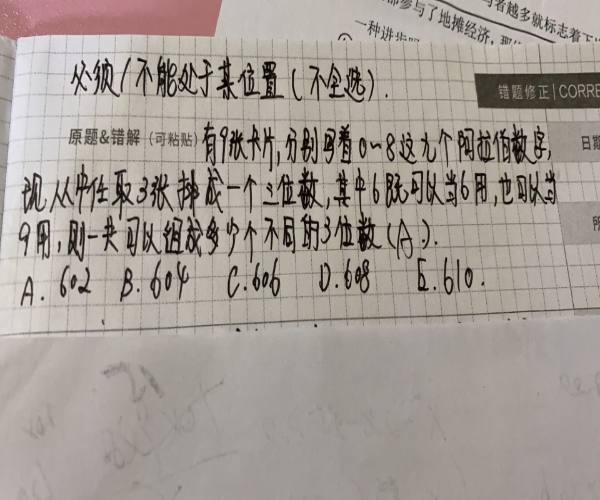 部参与了地摊经济，那
者越多就标志着
一种进步
必须/不能处于某位置(不全选).
错题修正 | CORRE
原题&错解 (可粘贴) 有9张卡片,分别写着0~8这九个阿拉伯数字,
日期
现从中任取3张排成一个三位数,其中6既可以当6用,也可以当
9用,则一共可以组成多少个不同的3位数(A).
所
A. 602 B. 604 C. 606 D. 608 E. 610.